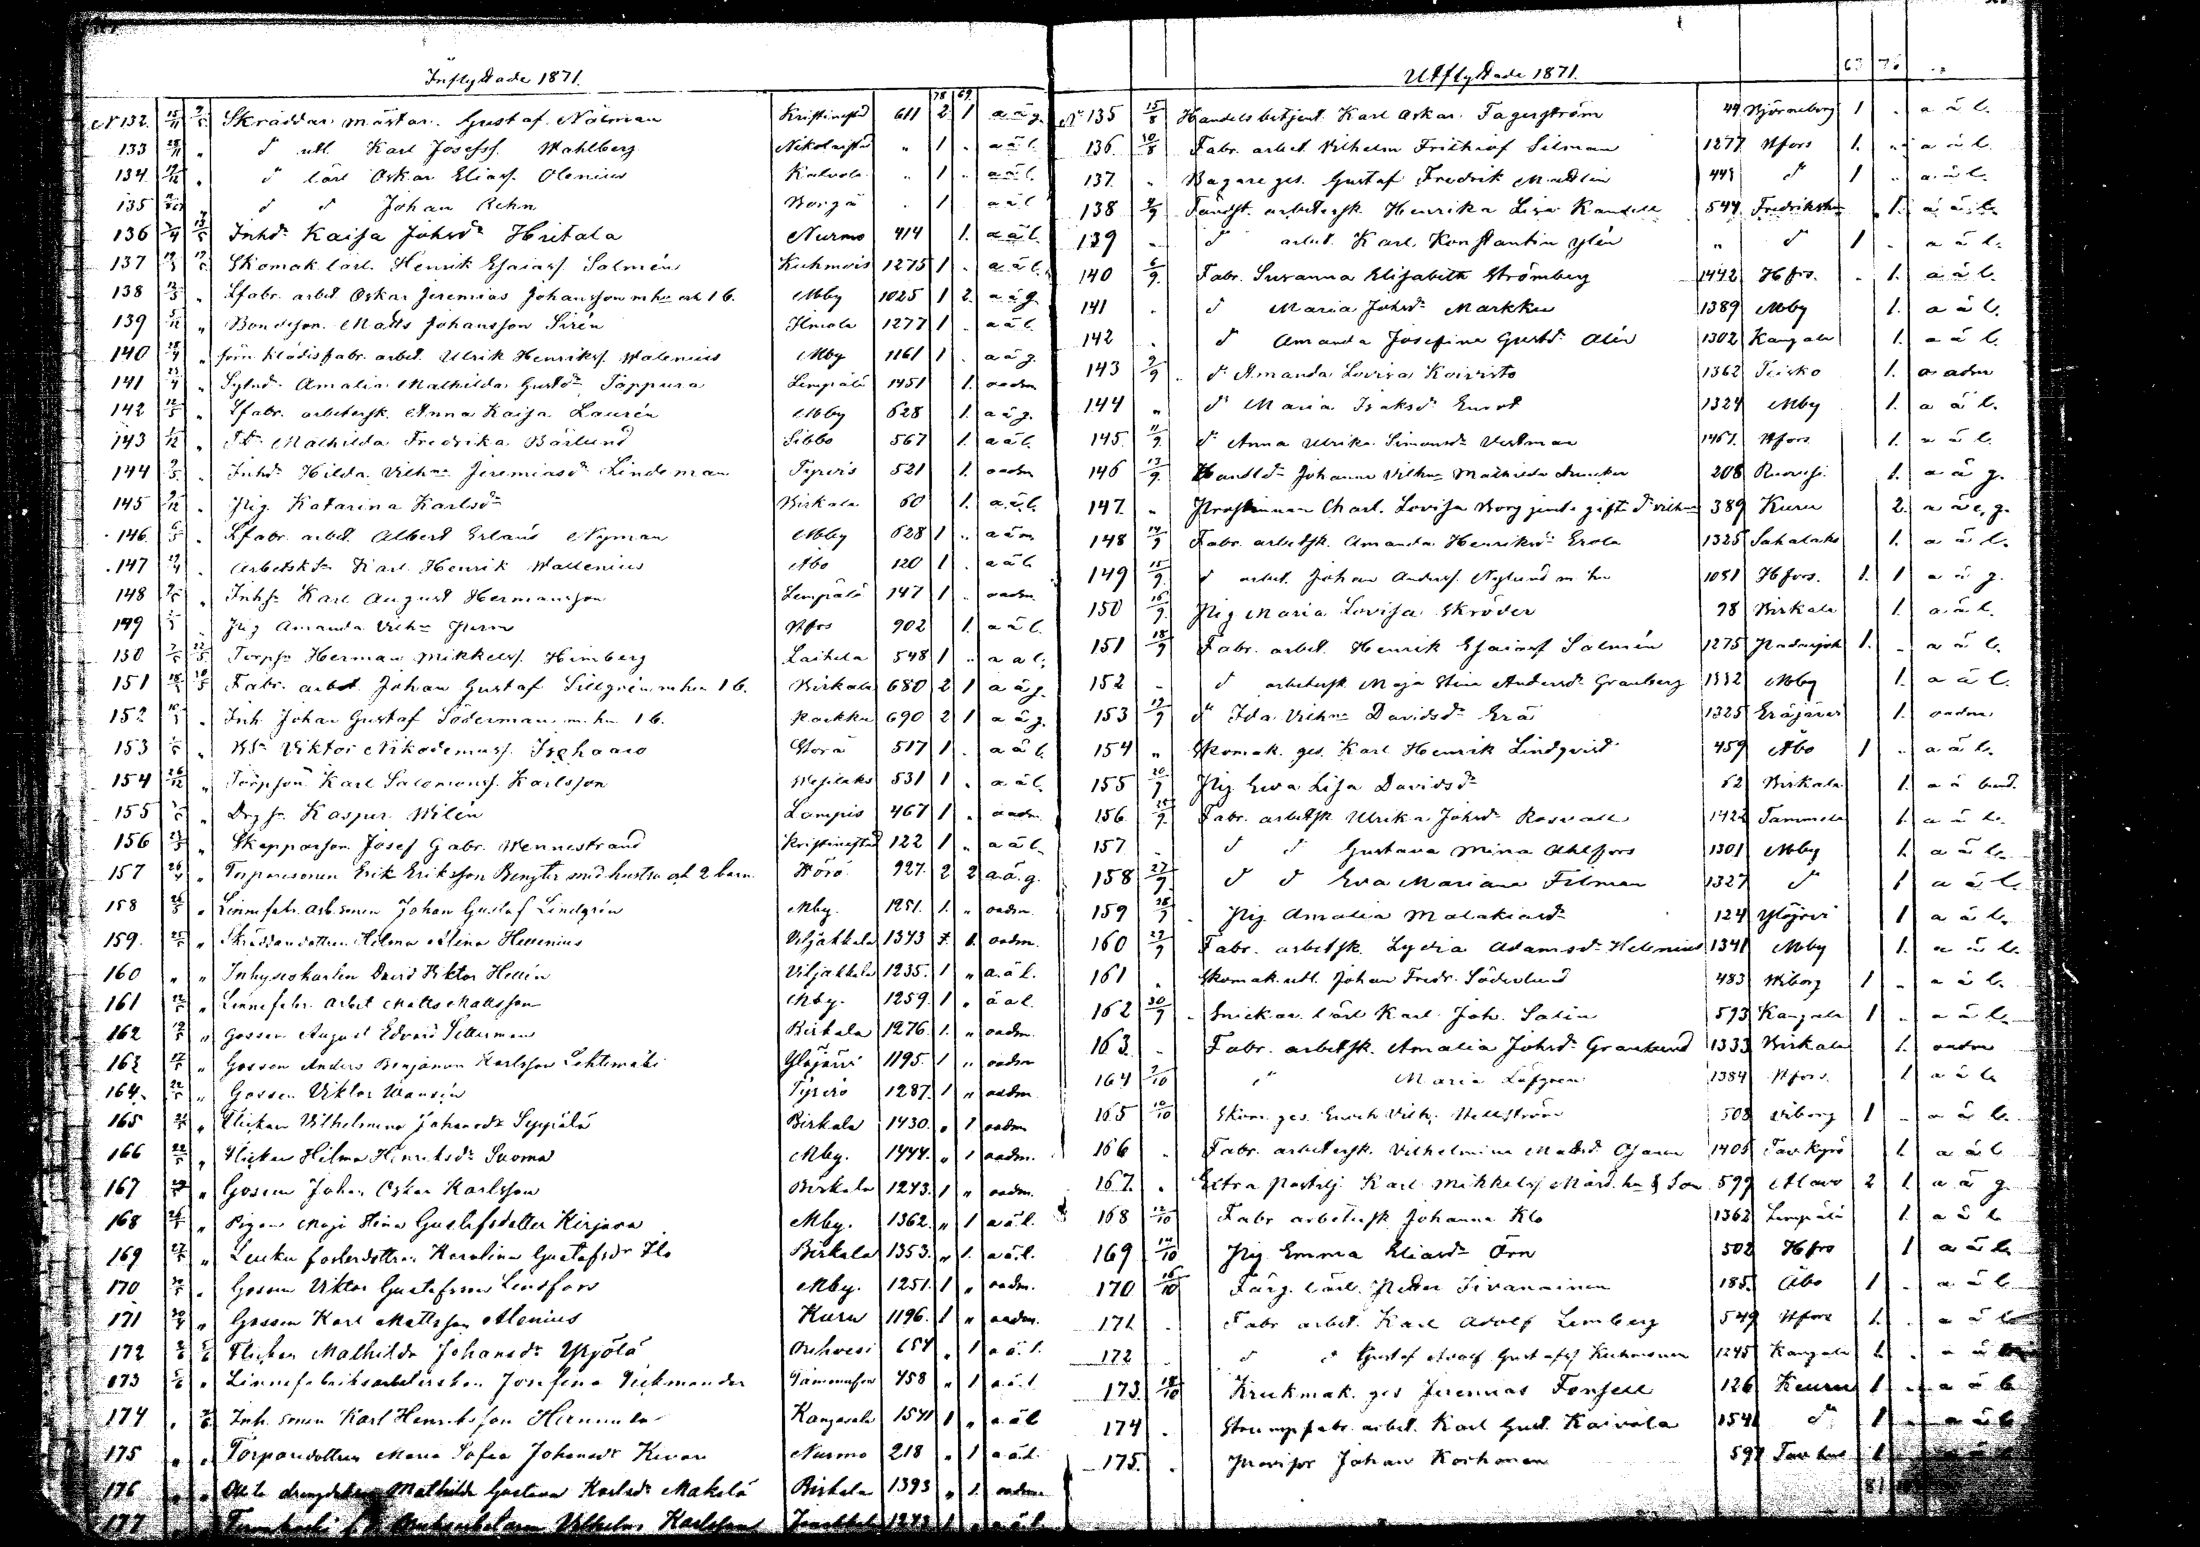 Inflyttade 1871.
78 69
N 132. 15/11 Skräddar mästar. Gustaf Nälman Kristinestd 611 2 1 a ä g.
133 28/11 " d utl. Karl Josefss. Wahlberg Nikolaistd " 1 " a ä l.
134 " d lärl Oskar Eliass. Olenius Kalvola " 1 " a ä l.
135 " d d Johan Rehn Borgå 1 a ä l
136 Inhd. Kaisa Johsdr Hietala Nurmo 414 1. a ä l.
137 Skomak. lärl. Henrik Esaiass. Salmén Kuhmois 1275 1 . a ä l.
138 " Lfabr. arbet Oskar Jeremias Johansson m hu och 1 b. Mby 1025 1 2. a ä g.
139 " Bondeson Matts Johansson Sirén Ilmola 1277 1 . a ä l.
140 " förn klädesfabr. arbet. Ulrik Henrikss. Walenius Mby 1161 1 . a ä g.
141 Amalia Mathilda Gustdr Tappura Lempälä 1451 1. oadm
142 " Lfabr. arbetersk. Anna Kaisa Laurén Mby 628 1. a ä g.
143 " Mathilda Fredrika Bärlund Sibbo 567 1. a ä l.
144 . Inhdr Hilda Vilhna Jeremiasdr Lindeman Tyrvis 521 1. oadm
145 . Pig. Katarina Karlsdr Birkala 60 1. a ä l.
146. . Lfabr. arbet. Albert Erland Nyman Mby 628 1 ..
147 . Arbetsk Karl Henrik Wallenius Åbo 120 1 . a ä l.
148 " Inhs Karl August Hermansson Lempälä 147 1 .. oadm.
149 Pig Amanda Vilhna Hfors 902 1. a ä l.
150 Torps Herman Mikkelss. Himberg Laihela 548 1 .. a ä l.
151 Fabr. arbet. Johan Gustaf Sillgrén m hu 1 b. Birkala 680 2 1 a ä g.
152 . Inh. Johan Gustaf Söderman m. hu 1 b. 690 2 1 a ä g.
153 " Viktor Nikodemuss. Storå 517 1 . a ä l.
154 " Torpson Karl Salomonss. Karlsson Wesilaks 531 1 . a ä l.
155 " Drgs. Kasper Wilén Lampis 467 1 " oadm.
156 " Skepparson Josef Gabr. Wennestrand Kristinestad 122 1 " a ä l.
157 " Torparesonen Erik Eriksson Bengter med hustru och 2 barn Wörå 927. 2 2 a. ä. g.
158 " Linnefabr. arb. sonen Johan Gustaf Lindgrén Mby. 1251. 1. " oadm.
159. " Skräddaredottren Hilma Alina Helenius Viljakkala 1343 1. oadm.
160 " " Inhyseskarlen David Viktor Hellén Viljakkala 1235. 1 " a. ä l.
161 " Linnefabr. arbet Matts Mattsson Mby. 1259. 1 " ä a l.
162 " Gossen August Edvard Setterman Birkala 1276. 1. " oadm.
163 " Gossen Anders Benjamin Karlsson Lehtimäki Ylöjärvi 1195. 1 " oadm
164. " Gossen Viktor Wansén Tyrvis 1287. 1 " oadm.
165 " Flickan Vilhelmina Johansdr Seppälä Birkala 1430. " 1 oadm
166 " Flickan Hilma Henriksdr Suoma Mby. 1444. " 1 oadm.
167 " Gossen Johan Oskar Karlsson Birkala 1243. 1 " oadm.
168 " Pigan Maja Stina Gustafsdotter Kirjava Mby. 1362. " 1 a ä l.
169 " Karolina Gustafsdr Ilo Birkala 1353. " 1. a. ä. l.
170 " Gossen Viktor Gustafsson Lindfors Mby. 1251. 1 " oadm.
171 " Gossen Karl Mattsson Alenius Kuru 1196. 1 " oadm.
172 Flickan Mathilda Johansdr Orihvesi 654 " 1 a. ä. l.
173 " Linnefabriksarbeterskan Josefina Dickmander Tammerfors 758 " 1 a. ä. l
174 " Inh. sonen Karl Henriksson Kangasala 1541 1 " a. ä l
175 " " Torparedottren Maria Sofia Johansdr Nurmo 218 " 1 a. ä. l.
176 " " Mathilda Gustava Karlsdr Makelä Birkala 1393 " 1. oadm
177 Vilhelm Karlsson 1243 1 " a. ä. l.
Utflyttade 1871.
63 76
No 135 15/8 Handelsbetjent Karl Oskar Fagerström 49 Björneborg 1 . a ä l.
136 10/8 Fabr. arbet. Vilhelm Frithiof Silman 1277 Hfors 1. .. a ä l.
137. " Bagare ges. Gustaf Fredrik Medlin 448 d 1 " a ä l.
138 2/9 Tändst. arbetersk. Henrika Lisa Kandell 544 Fredriksh 1. a ä l.
139 " d arbet. Karl Konstantin Ylén " d 1 . a ä l.
140 6/9. Fabr. Susanna Elisabeth Strömberg 1442 Hfrs. . 1. a ä l.
141 . d Maria Johsdr Markku 1389 Mby 1. a ä l.
142 . d Amanda Josefina Gustdr Alén 1302 Kangala 1. a ä l.
143 9/9 d. Amanda Lovisa Koivisto 1362 Teisko 1. oadm
144 " d. Maria Isaksdr 1324 Mby 1. a ä l.
145. 11/9. d. Anna Ulrika Simonsdr Vestman 1467. Hfors 1. a ä l.
146 13/9. Johanna Vilhna Mathilda 208 Ruovesi 1. a ä g.
147. " Charl. Lovisa Borg 389 Kuru 2. a ä g.
148 14/9 Fabr. arbetsk. Amanda Henriksdr Erola 1325 Sahalaks 1. a ä l.
149 15/9. d arbet. Johan Anderss. Nylund m hu 1081 Hfors. 1. 1 a ä g.
150 16/9. Pig Maria Lovisa Skröder 98 Birkala 1. a ä l.
151 18/9 Fabr. arbet. Henrik Esaiass Salmén 1275 Padasjok 1. . a ä l.
152 .. d arbetersk. Maja Stina Andersdr Granberg 1332 Mby 1. a ä l.
153 19/9 d Ida Vilhna Davidsdr Erä 1325 Eräjärvi 1. oadm
154 " Skomak. ges. Karl Henrik Lindqvist 459 Åbo 1 .. a ä l.
155 20/9 Pig Eva Lisa Davidsdr 62 Birkala 1. a ä
156 25/9. Fabr. arbetsk Ulrika Johsdr Rosvall 1422 Tammela 1. a ä l.
157 . d d Gustava Mina Ahlfors 1301 Mby 1. a ä l.
158 27/9. d d Eva Mariana Filman 1327 d 1 a ä l.
159 28/9 . Pig Amalia Malakiasdr 124 Ylöjrvi 1 a ä l.
160 29/9 Fabr. arbetsk. Lydia Adamsdr Helenius 1341 Mby 1. a ä l.
161 " Skomak. utl. Johan Fredr. Söderlund 483 Wiborg 1 .. a ä l.
162 30/9 . Snickar. lärl Karl Joh. Salin 593 Kangala 1 . a ä l.
163. . Fabr. arbetsk. Amalia Johsdr Granlund 1333 Birkala 1. oadm
164 7/10 d Maria Löfgren 1384 Hfors. 1 a ä l.
165 10/10 Skom. ges. Enoch Vilh. Hellström 508 Viborg 1 .. a ä l.
166 . Fabr. arbetersk. Vilhelmina Mattsdr 1405 Tav. Kyrö 1. a ä l
167. . Extra postilj. Karl Mikkelss Mård hu & Son 599 Alavo 2 1. a ä g.
168 12/10 Fabr arbetersk Johanna Klo 1362 Lempälä 1. a ä l.
169 14/10 Pig. Emma Eliasdr Örn 502 Hfrs 1 a ä l.
170 16/10 Färg. lärl. Petter Sivanainen 185. Åbo 1 . a ä l.
171. . Fabr. arbet. Karl Adolf Lemberg 549 Hfors 1. . a ä l
172 d d Gustaf Adolf Gustafss 1245 Kangala 1. . a ä
173. 18/10 Krukmak. ges Jeremias Fonsell 126 Keuru 1 .. a ä l
174 . Strumpfabr. arbet. Karl Gust. Koivola 1541 d 1 a ä l
175. . Provisor Johan Korhonen 597 1
81